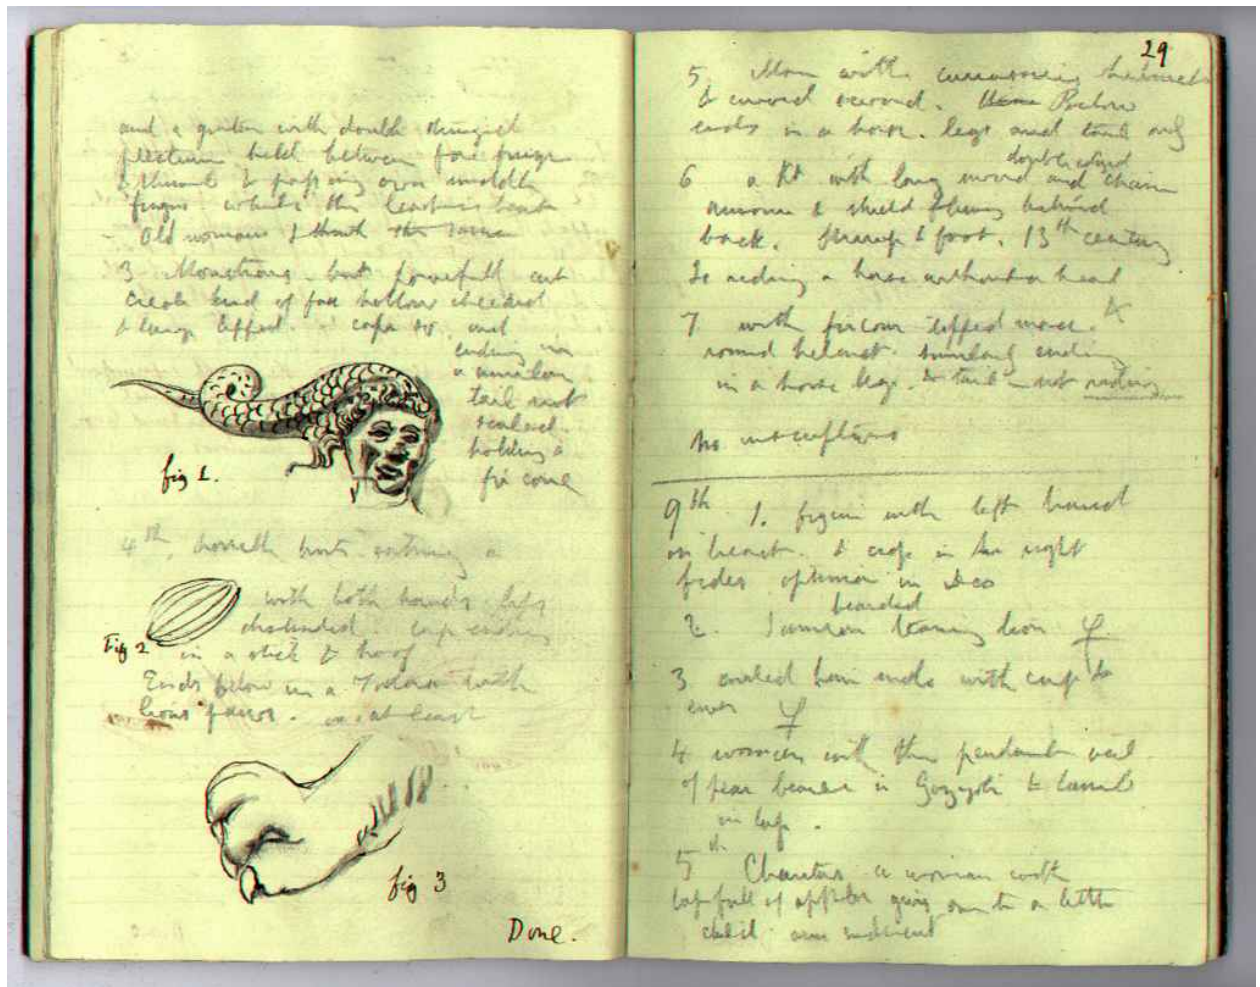 and a guitar with double stringed
plectrum held between fore finger
& thumb & passing over middle
finger while the
Old woman I think the
3 Monstrous but powerfull cut
Greek kind of face hollow cheeked
& large lipped. cape so. and
ending in
a similar
tail not
scaled.
holding a
fir cone
fig 1.
4th. horrible brute eating a
with both hands lips
distended. cap ending
Fig 2
in a stick & hoof
Ends below in a with
lions paws. or at least
fig 3
Done.
29
5. Man with helmet
& curved sword. Below
ends in a horse. legs and tail only
double edged
6 a Kt with long sword and chain
armour & shield behind
back. Stirrup & foot. 13th century
Is riding a horse without a head
7 with fircone tipped mace. &
round helmet. similarly ending
in a horse legs. & tail - not riding
No inscriptions
9th 1. figure with left hand
on breast. & cup in the right
fides optima in Deo
bearded
2. Samson tearing lion
3 ends with cup &
ewer
4 woman with the pendant veil
of in Gozzoli & lamb
in lap.
5th Charitas a woman with
lapfull of apples giving one to a little
child